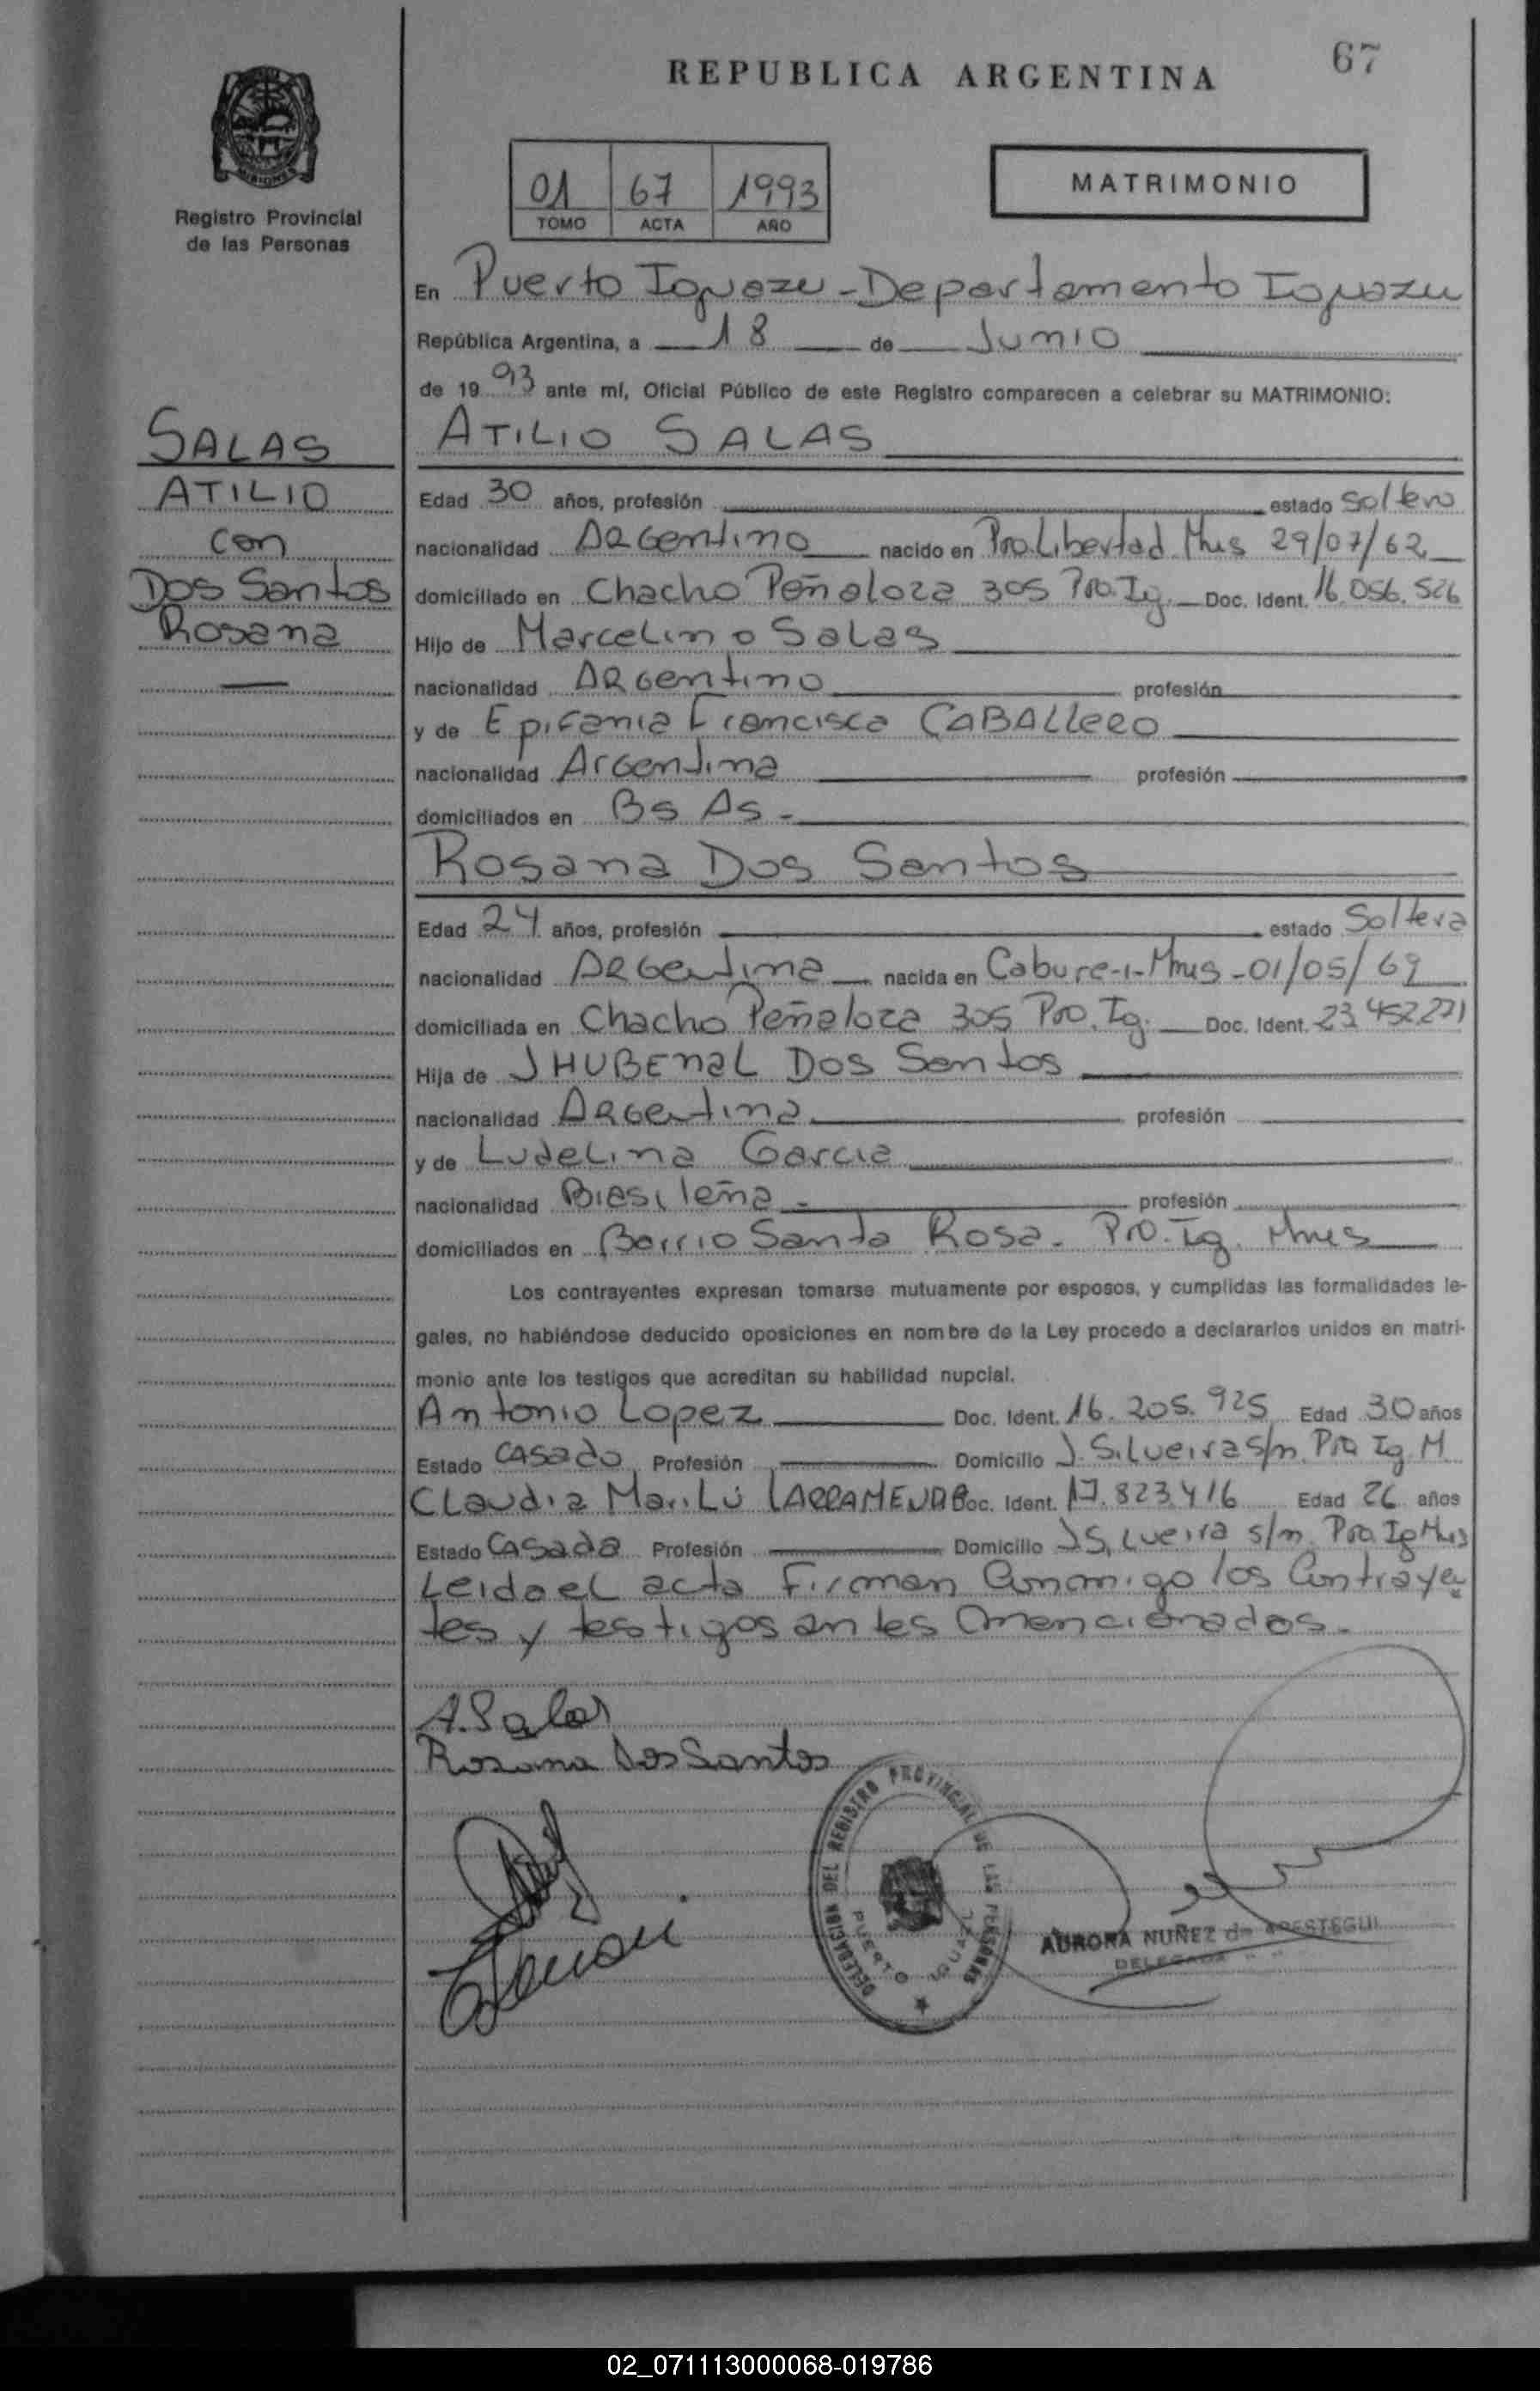 67
REPUBLICA ARGENTINA
MISIONES
Registro Provincial
de las Personas
01 67 1993
TOMO ACTA AÑO
MATRIMONIO
En Puerto Iguazu - Departamento Iguazu
República Argentina, a 18 de Junio
de 1993 ante mí, Oficial Público de este Registro comparecen a celebrar su MATRIMONIO:
SALAS
ATILIO
con
Dos Santos
Rosana
ATILIO SALAS
Edad 30 años, profesión estado Soltero
nacionalidad ARGentino nacido en Pto. Libertad Mnes 29/07/62
domiciliado en Chacho Peñaloza 305 Pto. Ig. Doc. Ident. 16.056.526
Hijo de Marcelino Salas
nacionalidad ARGentino profesión
y de Epifania Francisca CABALLERO
nacionalidad Argentina profesión
domiciliados en Bs As -
Rosana Dos Santos
Edad 24 años, profesión estado Soltera
nacionalidad ARGentina nacida en Cabure-i-Mnes - 01/05/69
domiciliada en Chacho Peñaloza 305 Pto. Ig. Doc. Ident. 23.452.271
Hija de JHUBEnaL Dos Santos
nacionalidad ARGentina profesión
y de LudeLina Garcia
nacionalidad Brasileña - profesión
domiciliados en Barrio Santa Rosa - Pto. Ig. Mnes
Los contrayentes expresan tomarse mutuamente por esposos, y cumplidas las formalidades le-
gales, no habiéndose deducido oposiciones en nombre de la Ley procedo a declararlos unidos en matri-
monio ante los testigos que acreditan su habilidad nupcial.
Antonio Lopez Doc. Ident. 16.205.925 Edad 30 años
Estado CASado Profesión Domicilio J. Silveira s/n. Pto Ig. M
Claudia Marilú LARRAMENDE Doc. Ident. 17.823416 Edad 26 años
Estado CASada Profesión Domicilio J Silveira s/n Pto Ig Mnes
Leida el acta Firman Conmigo los Contrayen
tes y testigos antes mencionados.-
A. Salas
Rosana Dos Santos
DELEGACION DEL REGISTRO PROVINCIAL DE LAS PERSONAS
PUERTO IGUAZU
AURORA NUÑEZ de ARESTEGUI
DELEGADA
02_071113000068-019786